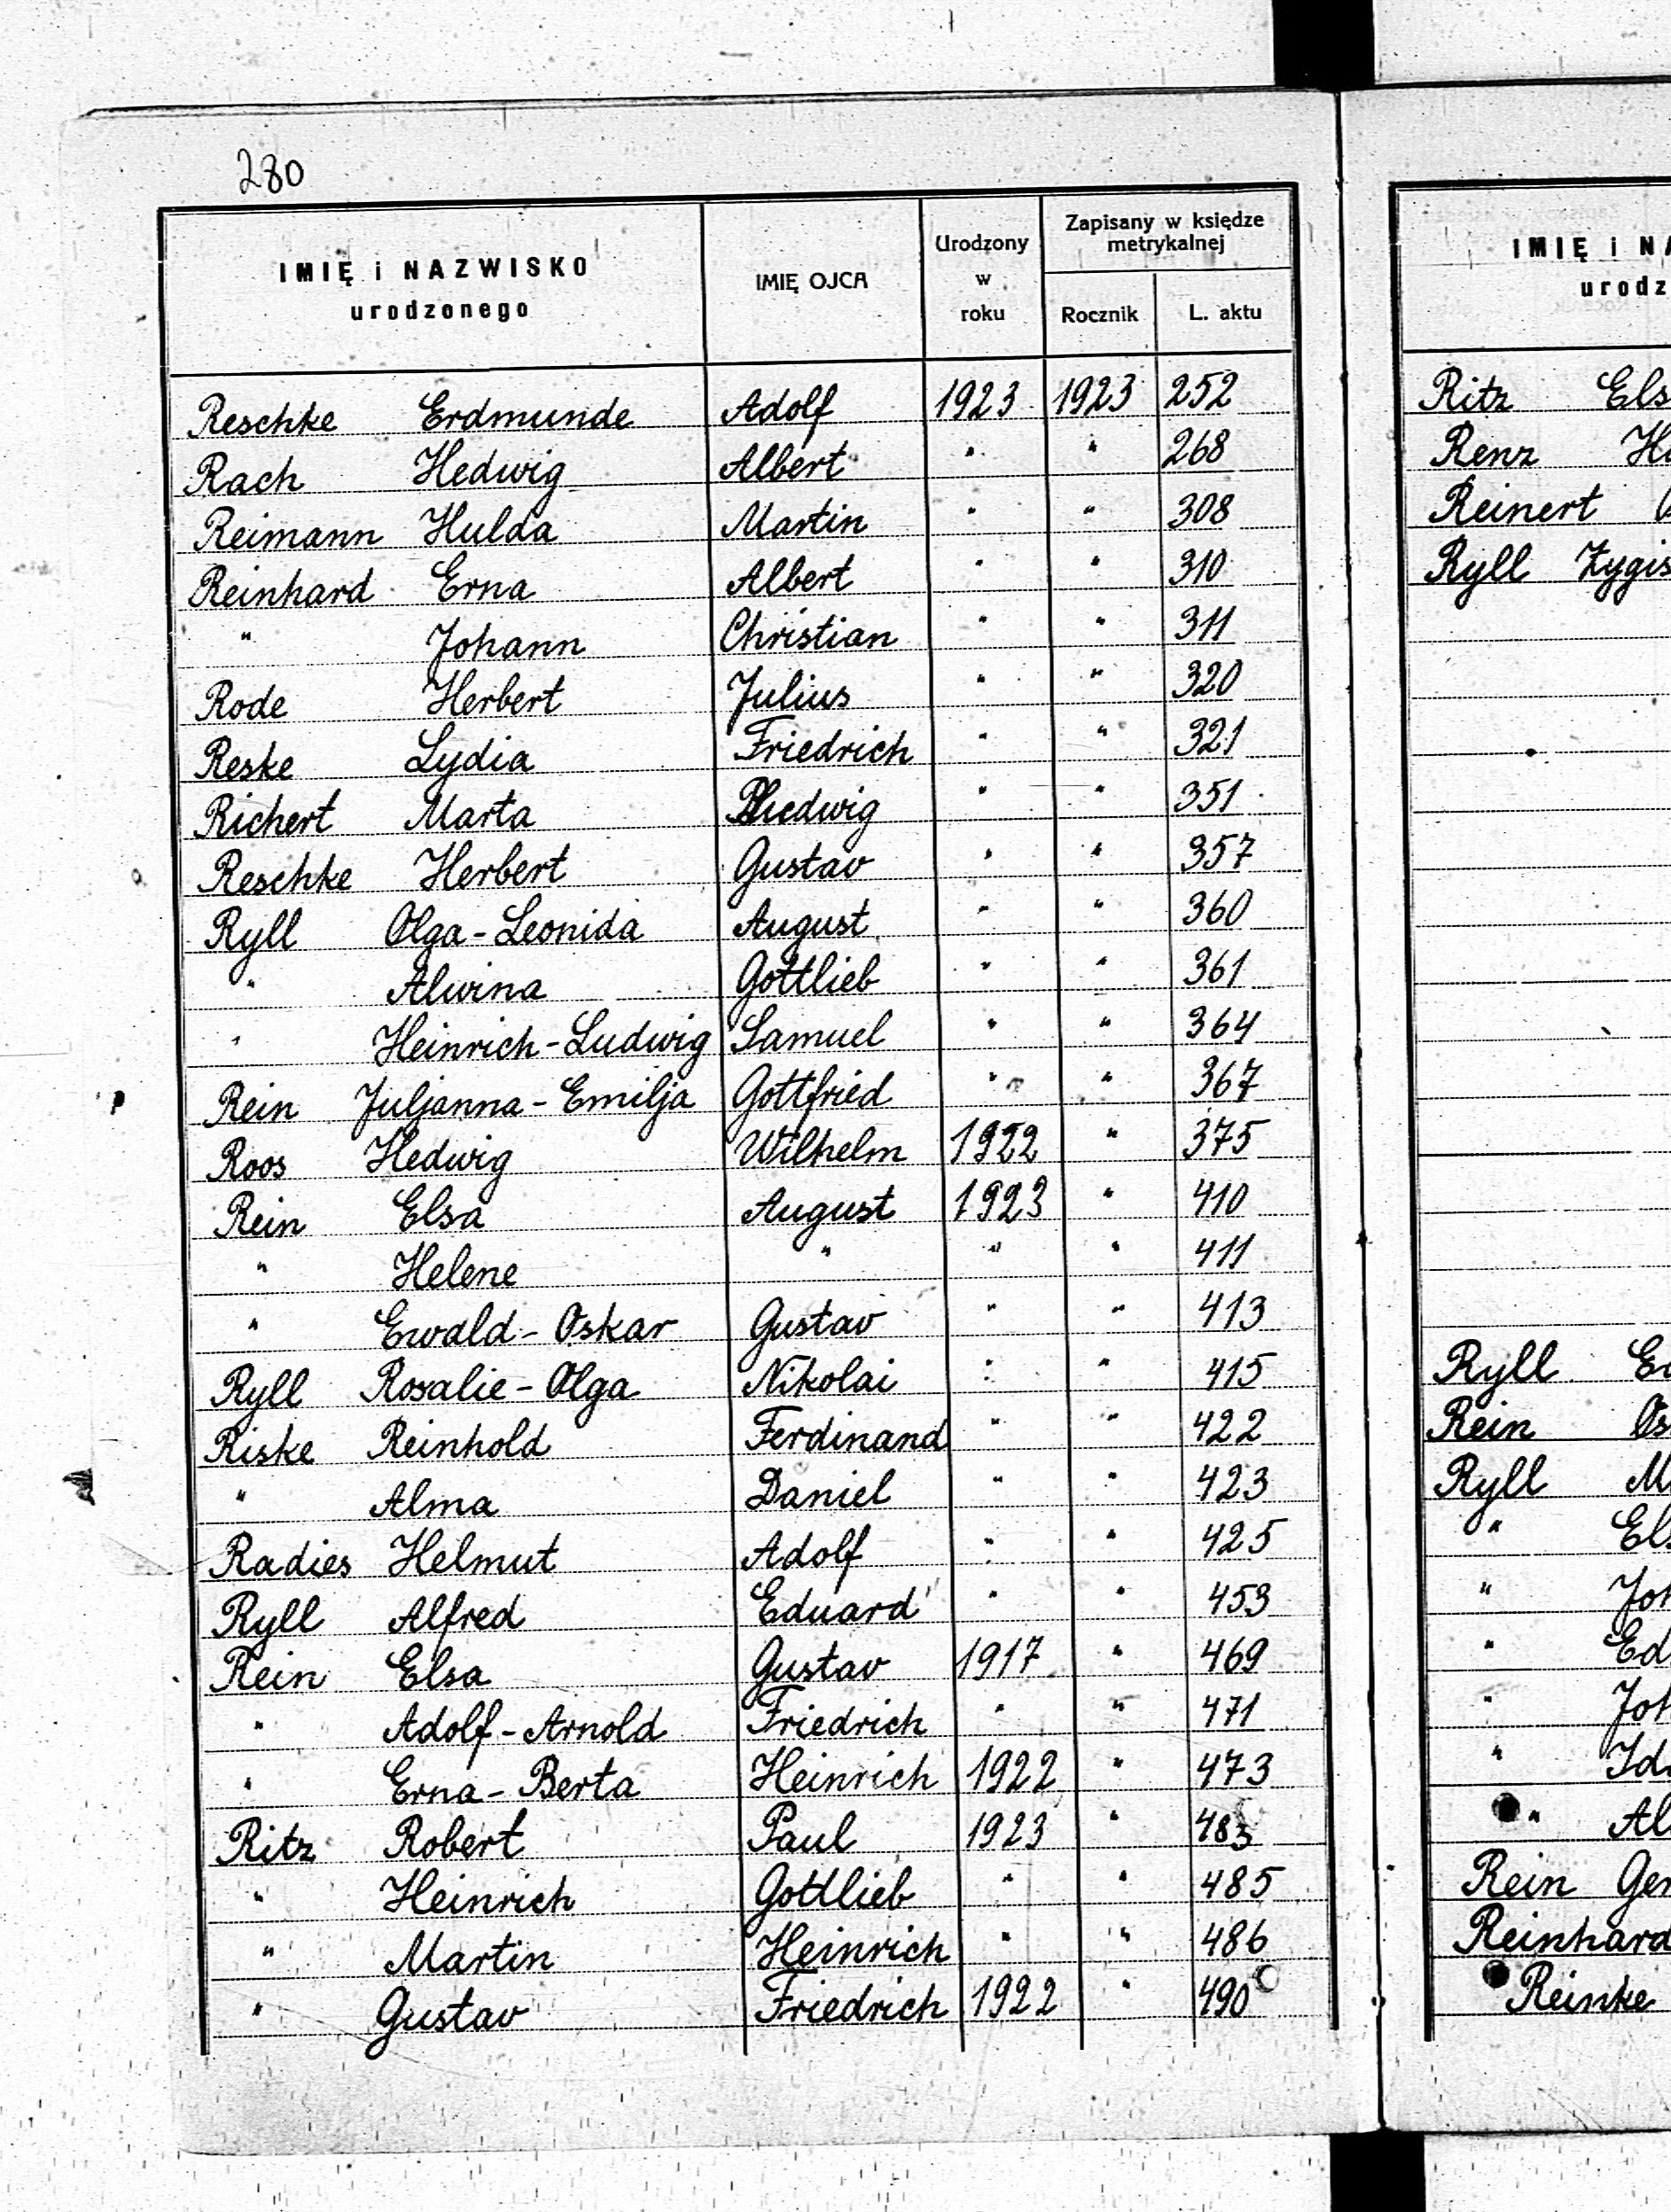 280
IMIĘ i NAZWISKO
urodzonego
IMIĘ OJCA
Urodzony
w
roku
Zapisany w księdze
metrykalnej
Rocznik
L. aktu
Reschke Erdmunde Adolf 1923 1923 252
Rach Hedwig Albert " " 268
Reimann Hulda Martin " " 308
Reinhard Erna Albert " " 310
" Johann Christian " " 311
Rode Herbert Julius " " 320
Reske Lydia Friedrich " " 321
Richert Marta Ludwig " " 351
Reschke Herbert Gustav " " 357
Ryll Olga-Leonida August " " 360
" Alwina Gottlieb " " 361
" Heinrich-Ludwig Samuel " " 364
Rein Juljanna-Emilja Gottfried " " 367
Roos Hedwig Wilhelm 1922 " 375
Rein Elsa August 1923 " 410
" Helene " " " 411
" Ewald-Oskar Gustav " " 413
Ryll Rosalie-Olga Nikolai " " 415
Riske Reinhold Ferdinand " " 422
" Alma Daniel " " 423
Radies Helmut Adolf " " 425
Ryll Alfred Eduard " " 453
Rein Elsa Gustav 1917 " 469
" Adolf-Arnold Friedrich " " 471
" Erna-Berta Heinrich 1922 " 473
Ritz Robert Paul 1923 " 483
" Heinrich Gottlieb " " 485
" Martin Heinrich " " 486
" Gustav Friedrich 1922 " 490
IMIĘ i NA
urodz
Ritz Els
Renz
Reinert
Ryll Zygis
Ryll
Rein Os
Ryll M
" Els
" Joh
" Ed
" Joh
" Id
" Al
Rein Ger
Reinhard
Reinke